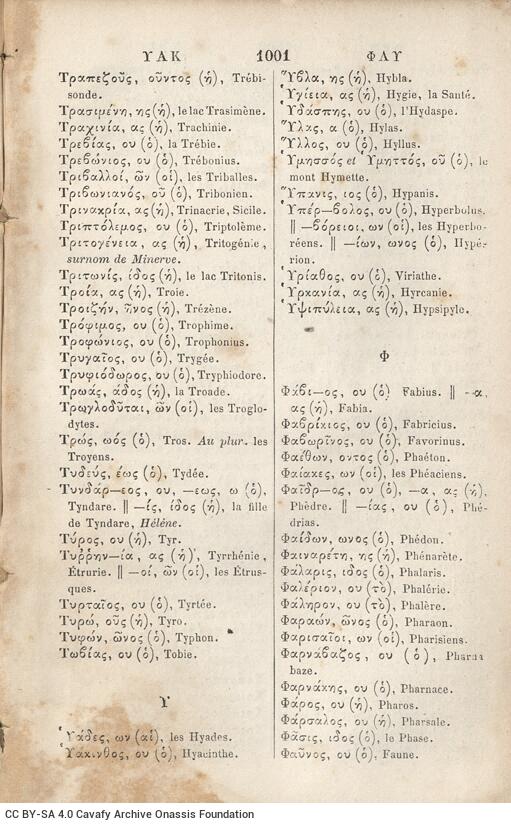 ΥΑΚ 1001 ΦΑΥ
Τραπεζοῦς, οῦντος (ἡ), Trébi-
sonde.
Τρασιμένη, ης (ἡ), le lac Trasimène.
Τραχινία, ας (ἡ), Trachinie.
Τρεβίας, ου (ὁ), la Trébie.
Τρεβώνιος, ου (ὁ), Trébonius.
Τριβαλλοί, ῶν (οἱ), les Triballes.
Τριβωνιανός, οῦ (ὁ), Tribonien.
Τρινακρία, ας (ἡ), Trinacrie, Sicile.
Τριπτόλεμος, ου (ὁ), Triptolème.
Τριτογένεια, ας (ἡ), Tritogénie,
surnom de Minerve.
Τριτωνίς, ίδος (ἡ), le lac Tritonis.
Τροία, ας (ἡ), Troie.
Τροιζήν, ῆνος (ἡ), Trézène.
Τρόφιμος, ου (ὁ), Trophime.
Τροφώνιος, ου (ὁ), Trophonius.
Τρυγαῖος, ου (ὁ), Trygée.
Τρυφιόδωρος, ου (ὁ), Tryphiodore.
Τρωάς, άδος (ἡ), la Troade.
Τρωγλοδύται, ῶν (οἱ), les Troglo-
dytes.
Τρώς, ωός (ὁ), Tros. Au plur. les
Troyens.
Τυδεύς, έως (ὁ), Tydée.
Τυνδάρ—εος, ου, —εως, ω (ὁ),
Tyndare. || —ίς, ίδος (ἡ), la fille
de Tyndare, Hélène.
Τύρος, ου (ἡ), Tyr.
Τυῤῥην—ία, ας (ἡ), Tyrrhénie,
Étrurie. || —οί, ῶν (οἱ), les Étrus-
ques.
Τυρταῖος, ου (ὁ), Tyrtée.
Τυρώ, οῦς (ἡ), Tyro.
Τυφών, ῶνος (ὁ), Typhon.
Τωβίας, ου (ὁ), Tobie.
Υ
Ὑάδες, ων (αἱ), les Hyades.
Ὑάκινθος, ου (ὁ), Hyacinthe.
Ὕβλα, ης (ἡ), Hybla.
Ὑγίεια, ας (ἡ), Hygie, la Santé.
Ὑδάσπης, ου (ὁ), l'Hydaspe.
Ὕλας, α (ὁ), Hylas.
Ὕλλος, ου (ὁ), Hyllus.
Ὑμησσός et Ὑμηττός, οῦ (ὁ), le
mont Hymette.
Ὕπανις, ιος (ὁ), Hypanis.
Ὑπέρ—βολος, ου (ὁ), Hyperbolus.
|| —βόρειοι, ων (οἱ), les Hyperbo-
réens. || —ίων, ωνος (ὁ), Hypé-
rion.
Ὑρίαθος, ου (ὁ), Viriathe.
Ὑρκανία, ας (ἡ), Hyrcanie.
Ὑψιπύλεια, ας (ἡ), Hypsipyle.
Φ
Φάβι—ος, ου (ὁ) Fabius. || —α,
ας (ἡ), Fabia.
Φαβρίκιος, ου (ὁ), Fabricius.
Φαβωρῖνος, ου (ὁ), Favorinus.
Φαέθων, οντος (ὁ), Phaéton.
Φαίακες, ων (οἱ), les Phéaciens.
Φαῖδρ—ος, ου (ὁ), —α, ας (ἡ),
Phèdre. || —ίας, ου (ὁ), Phé-
drias.
Φαίδων, ωνος (ὁ), Phédon.
Φαιναρέτη, ης (ἡ), Phénarète.
Φάλαρις, ιδος (ὁ), Phalaris.
Φαλέριον, ου (τὸ), Phalérie.
Φάληρον, ου (τὸ), Phalère.
Φαραών, ῶνος (ὁ), Pharaon.
Φαρισαῖοι, ων (οἱ), Pharisiens.
Φαρνάβαζος, ου (ὁ), Pharna
baze.
Φαρνάκης, ου (ὁ), Pharnace.
Φάρος, ου (ἡ), Pharos.
Φάρσαλος, ου (ἡ), Pharsale.
Φᾶσις, ιδος (ὁ), le Phase.
Φαῦνος, ου (ὁ), Faune.
CC BY-SA 4.0 Cavafy Archive Onassis Foundation